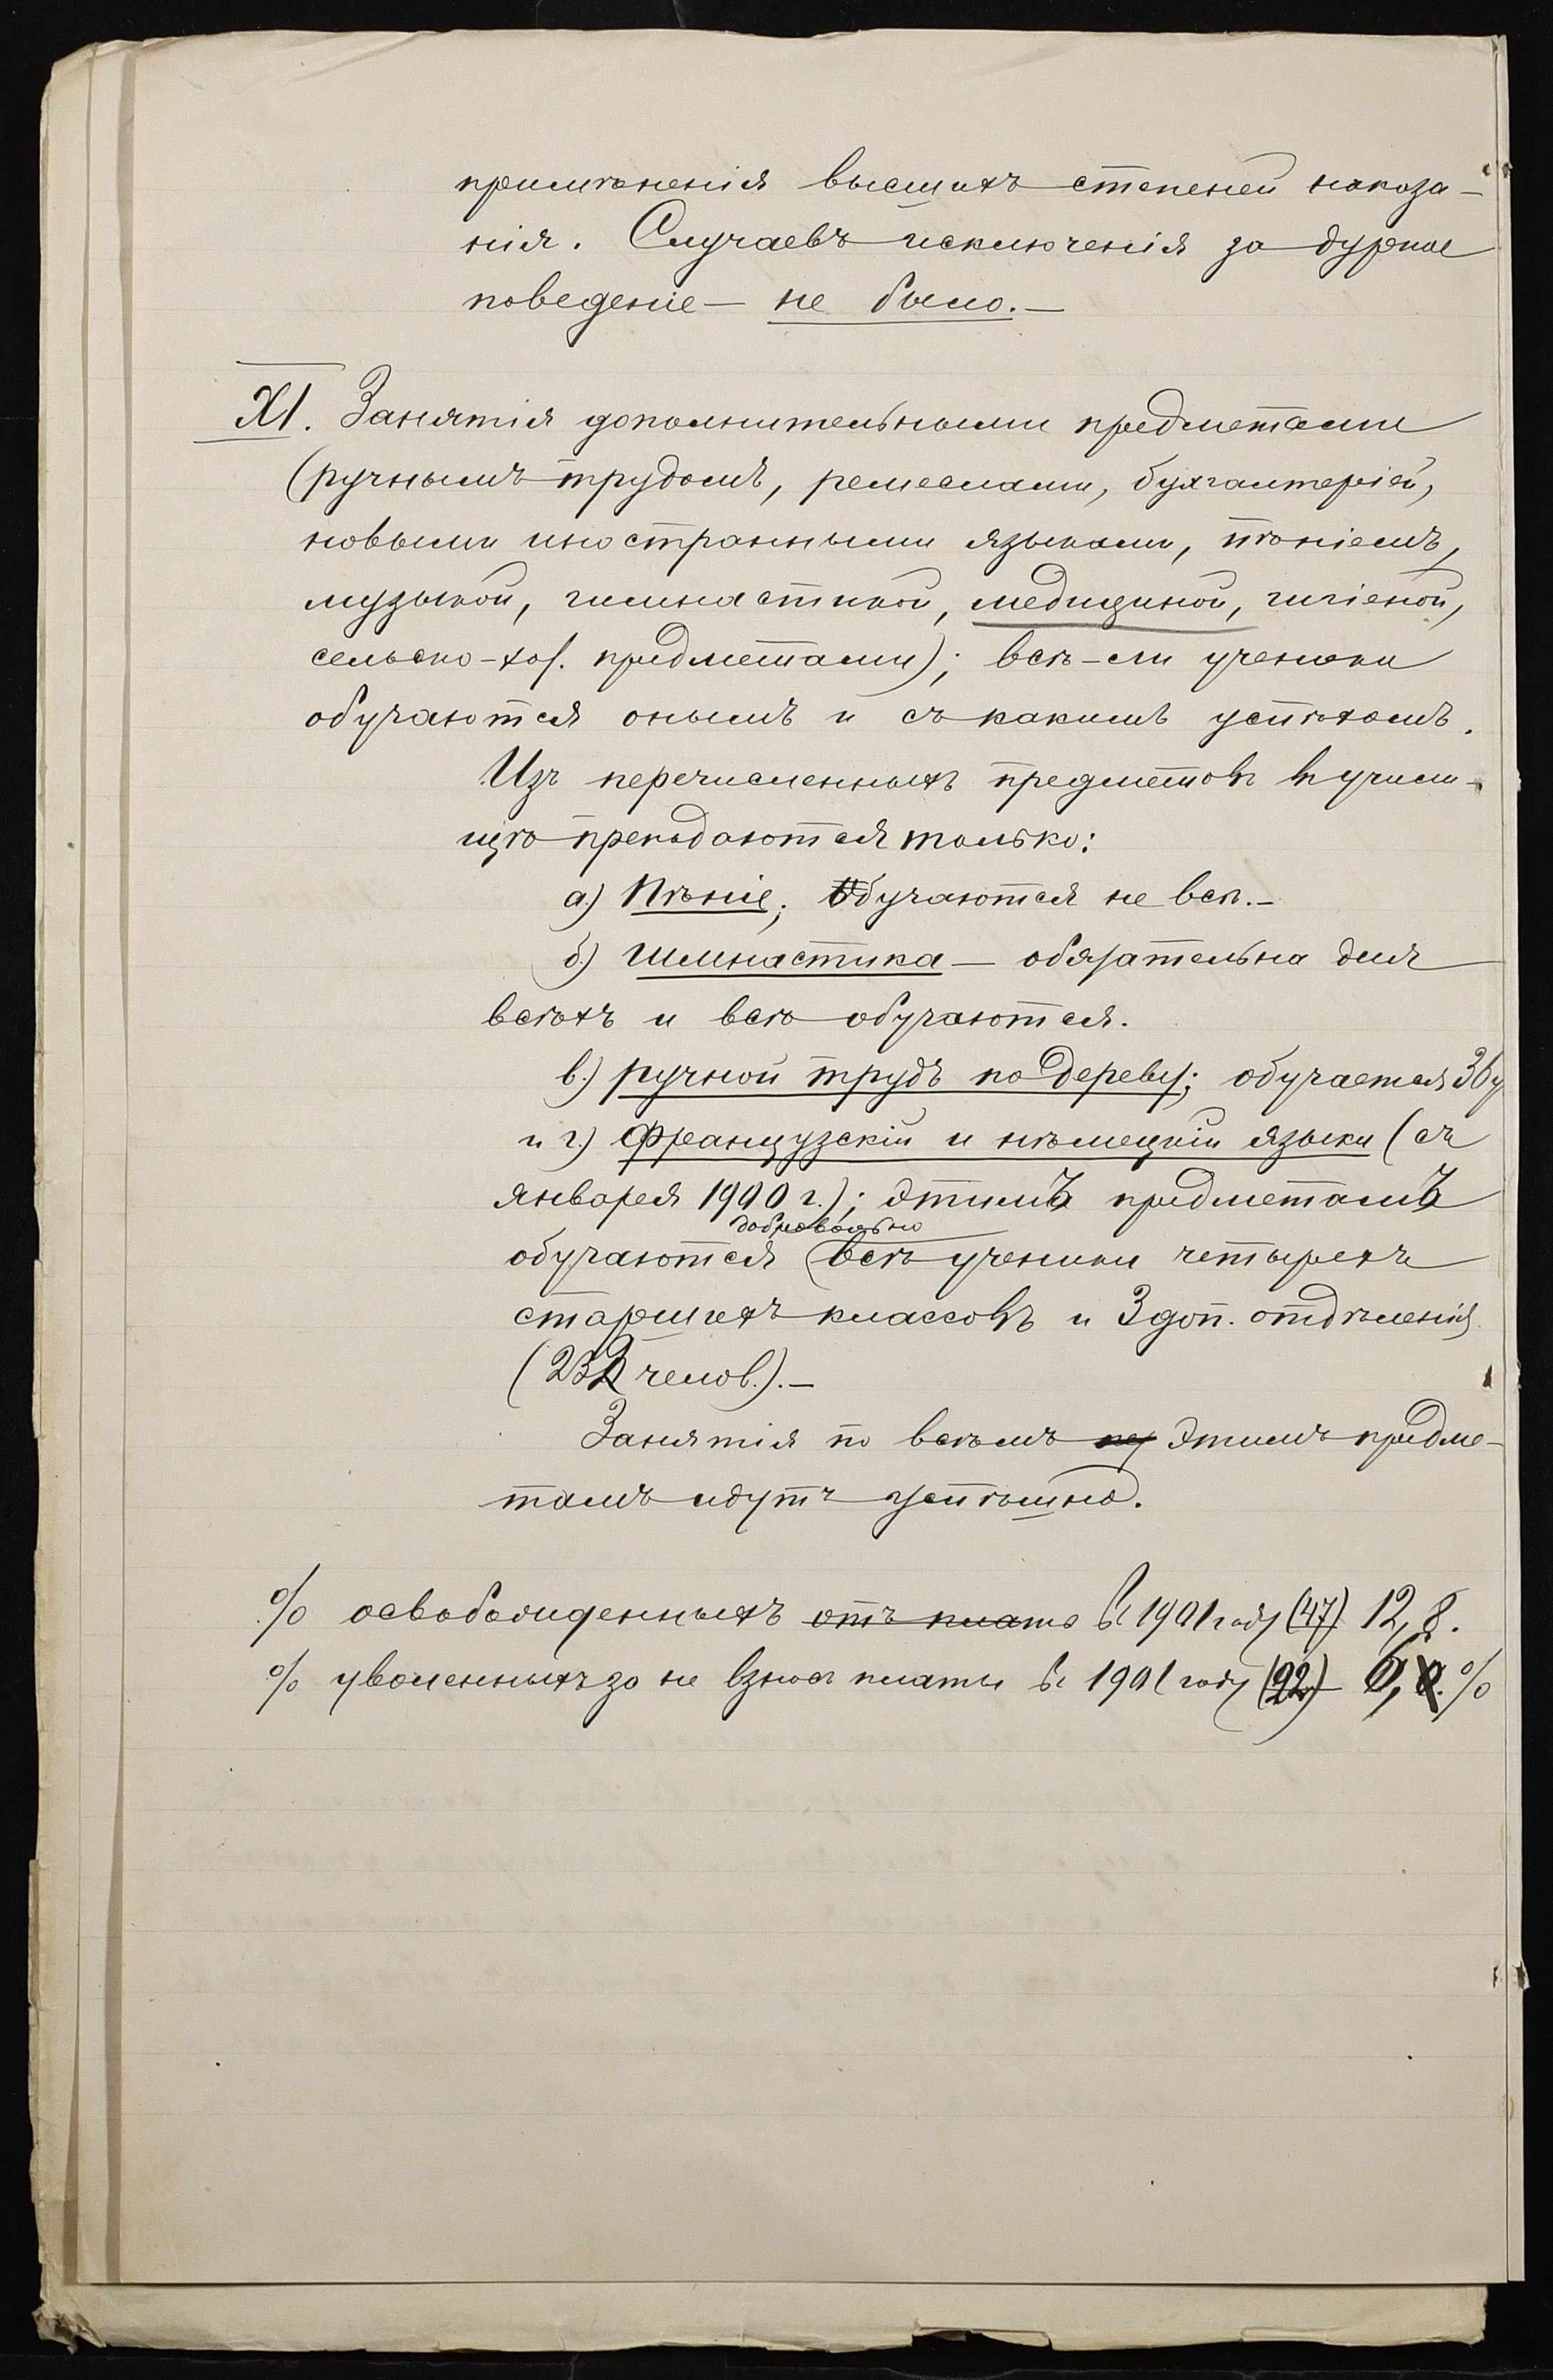 примѣненія высшихъ степеней наказа-
нія. Случаевъ исключенія за дурное
поведеніе — не было. —
XI. Занятія дополнительными предметами
(ручнымъ трудомъ, ремеслами, бухгалтеріей,
новыми иностранными языками, пѣніемъ,
музыкой, гимнастикой, медициной, гигіеной,
сельско-хоз. предметами); всѣ-ли ученики
обучаются онымъ и съ какимъ успѣхомъ.
Изъ перечисленныхъ предметовъ въ учили-
щѣ преподаются только:
а) Пѣніе; обучаются не всѣ. —
б) гимнастика — обязательна для
всѣхъ и всѣ обучаются.
в) ручной трудъ по дереву; обучается 36 у
и г.) Французскій и нѣмецкій языки (съ
января 1900 г.); этимъ предметамъ
добровольно
обучаются всѣ ученики четырехъ
старшихъ классовъ и 3 доп. отдѣленія
(232 челов.). —
Занятія по всѣмъ этимъ предме-
тамъ идутъ успѣшно.
% освобожденныхъ отъ платы въ 1901 году (47) 12,8.
% уволенныхъ за не взносъ платы въ 1901 году (22) 6, %